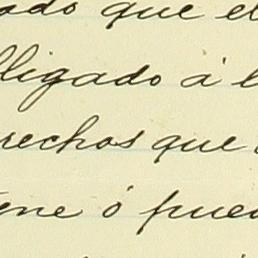 ado que el
lligado á l
rechos que
ene ó pued